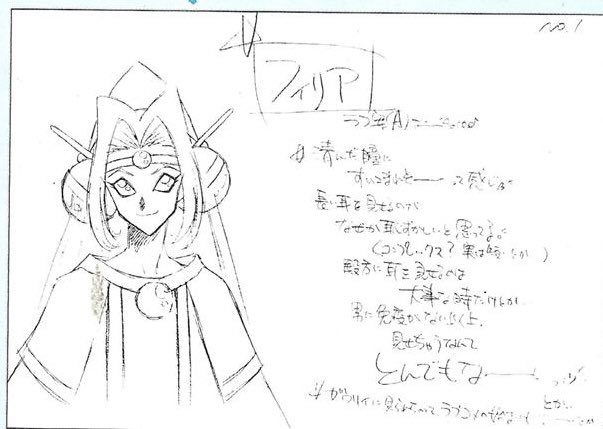 no.1
フィリア
ラブ
澄んだ瞳に
すいこまれそーーって感じ
長い耳を見せるのが
なぜか恥ずかしいと思ってる。
(コンプレックス？実は
殿方に耳を見せるのは
大事な時だけとか。
男に免疫がない
見せちゃうなんて
とんでもなーー
ガウリイに見られちゃって、ラブコメの
とか。